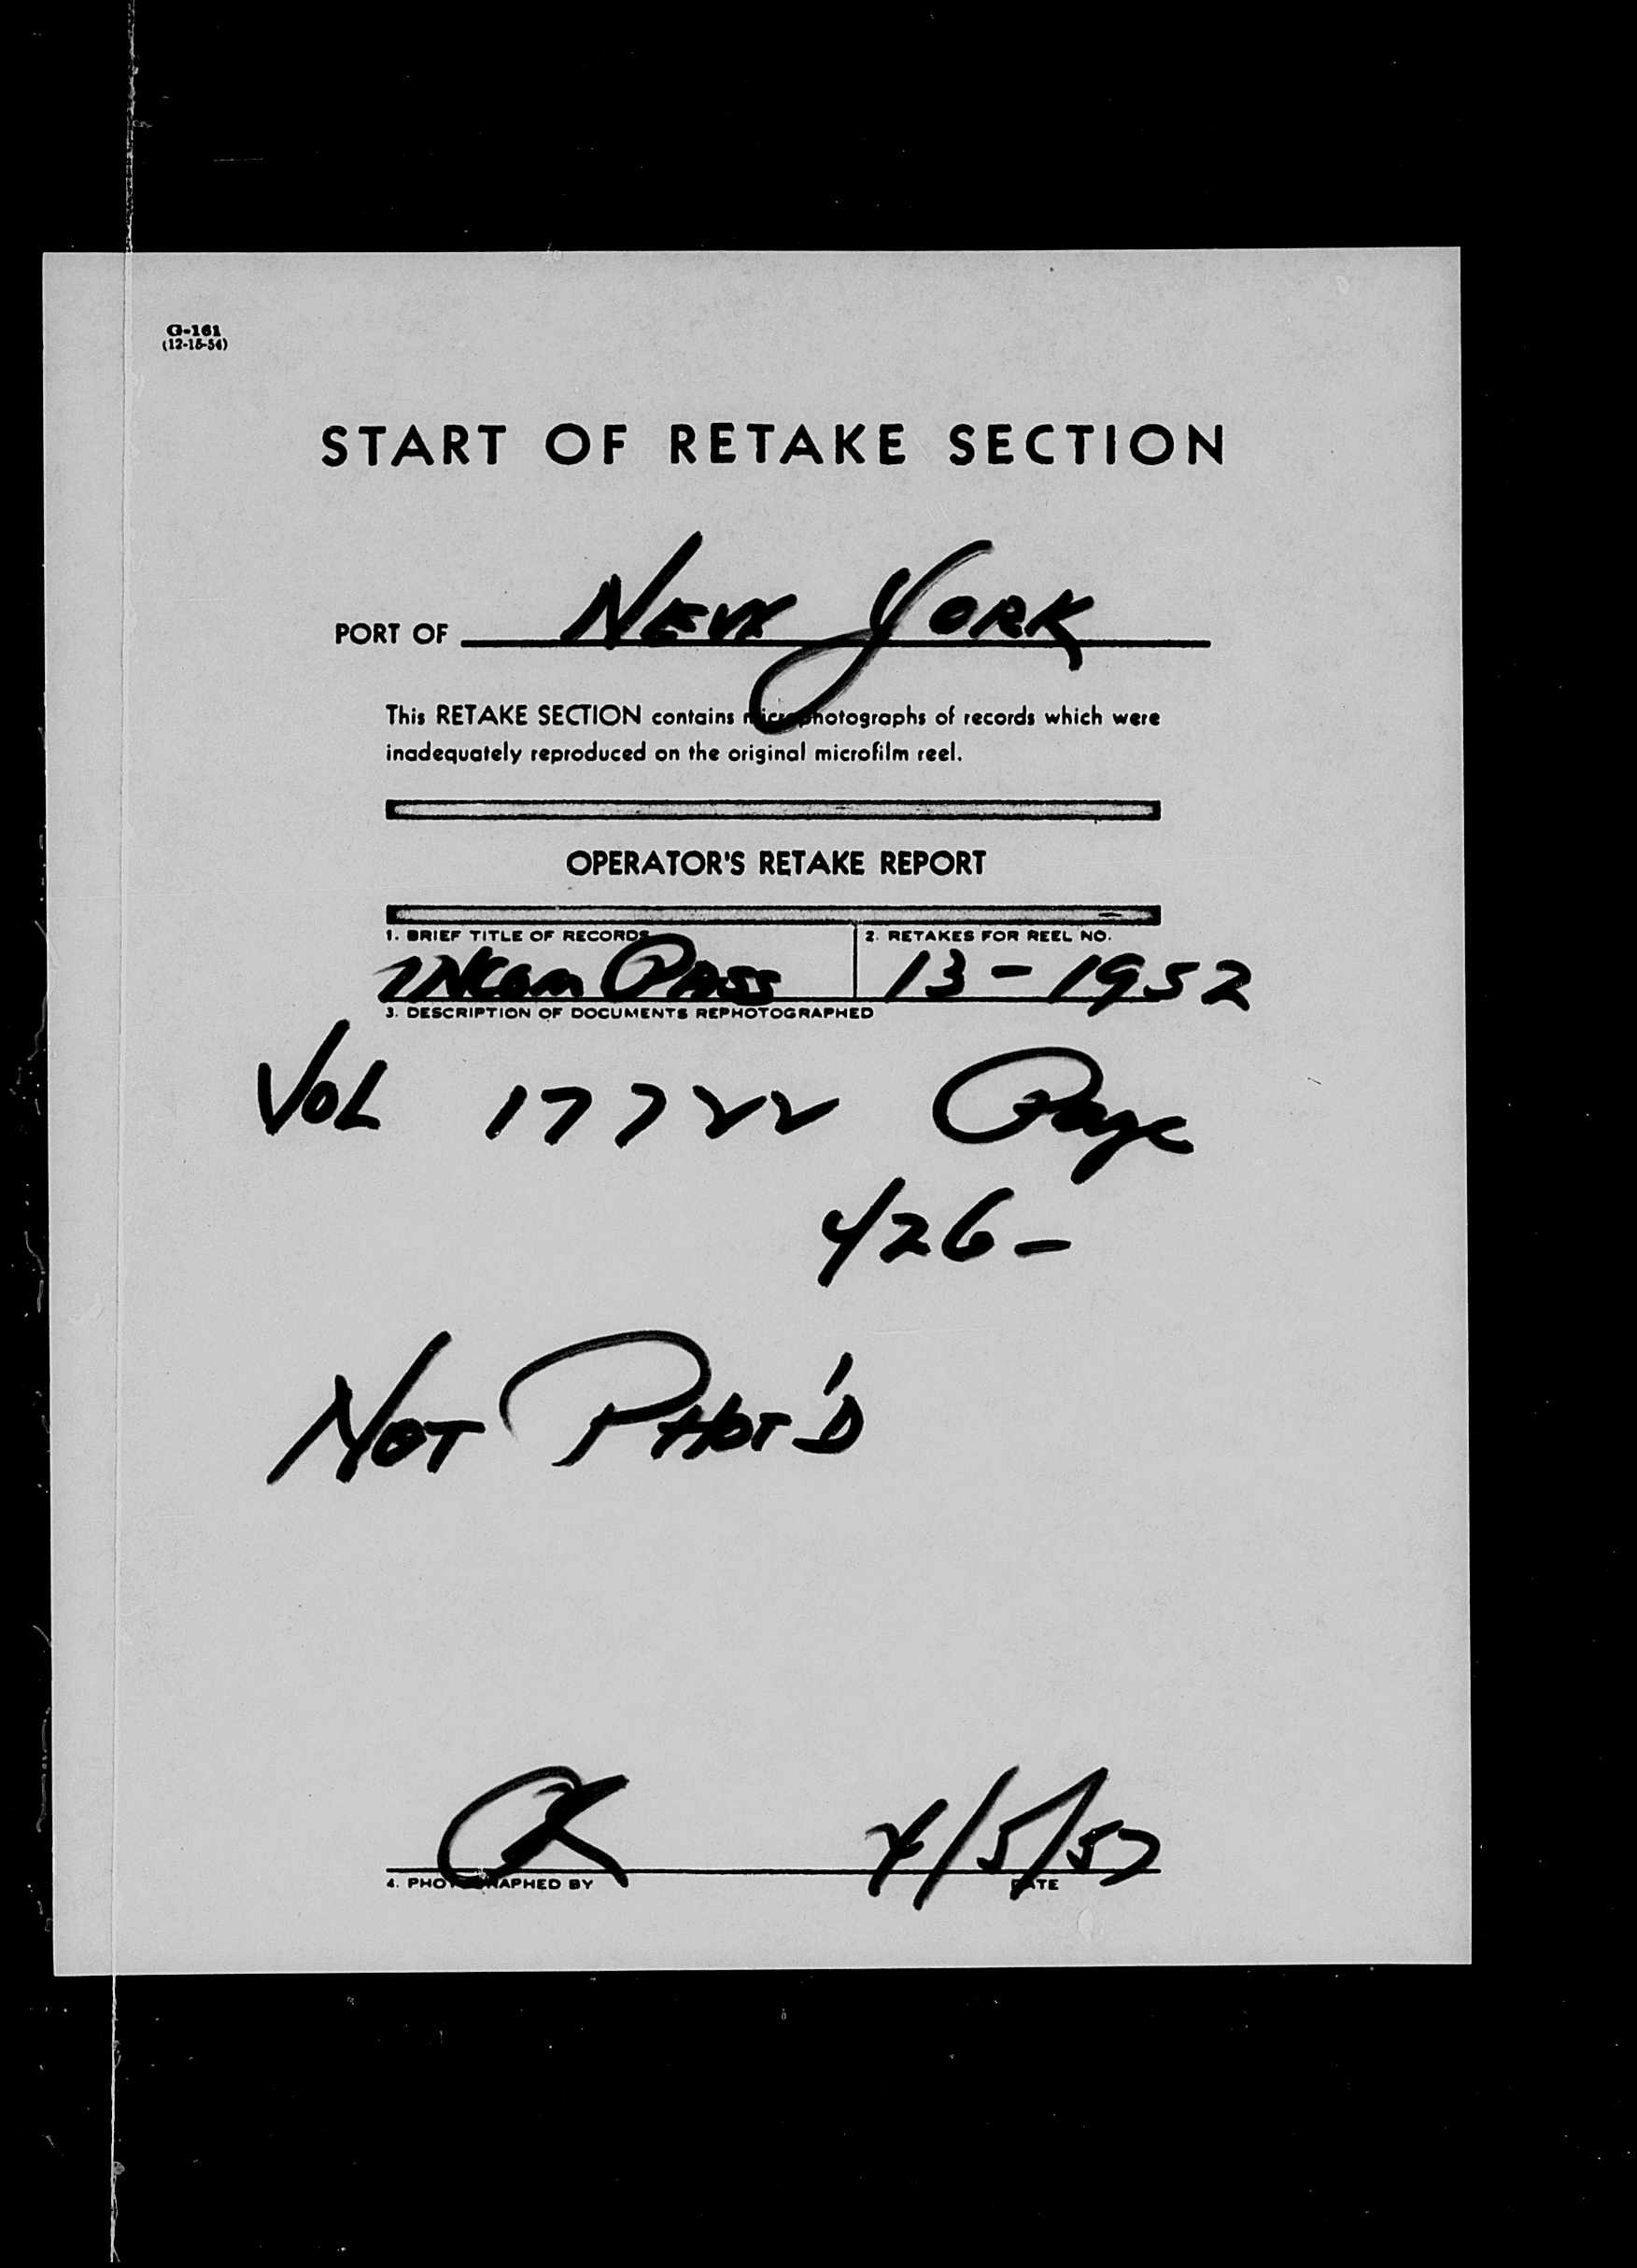 G-161
(12-15-54)
START OF RETAKE SECTION
PORT OF NEW YORK
This RETAKE SECTION contains microphotographs of records which were
inadequately reproduced on the original microfilm reel.
OPERATOR'S RETAKE REPORT
1. BRIEF TITLE OF RECORDS 2. RETAKES FOR REEL NO.
INCOM PASS 13-1952
3. DESCRIPTION OF DOCUMENTS REPHOTOGRAPHED
VOL 17722 Page
426-
NOT PHOT'D
4/5/57
4. PHOTOGRAPHED BY DATE